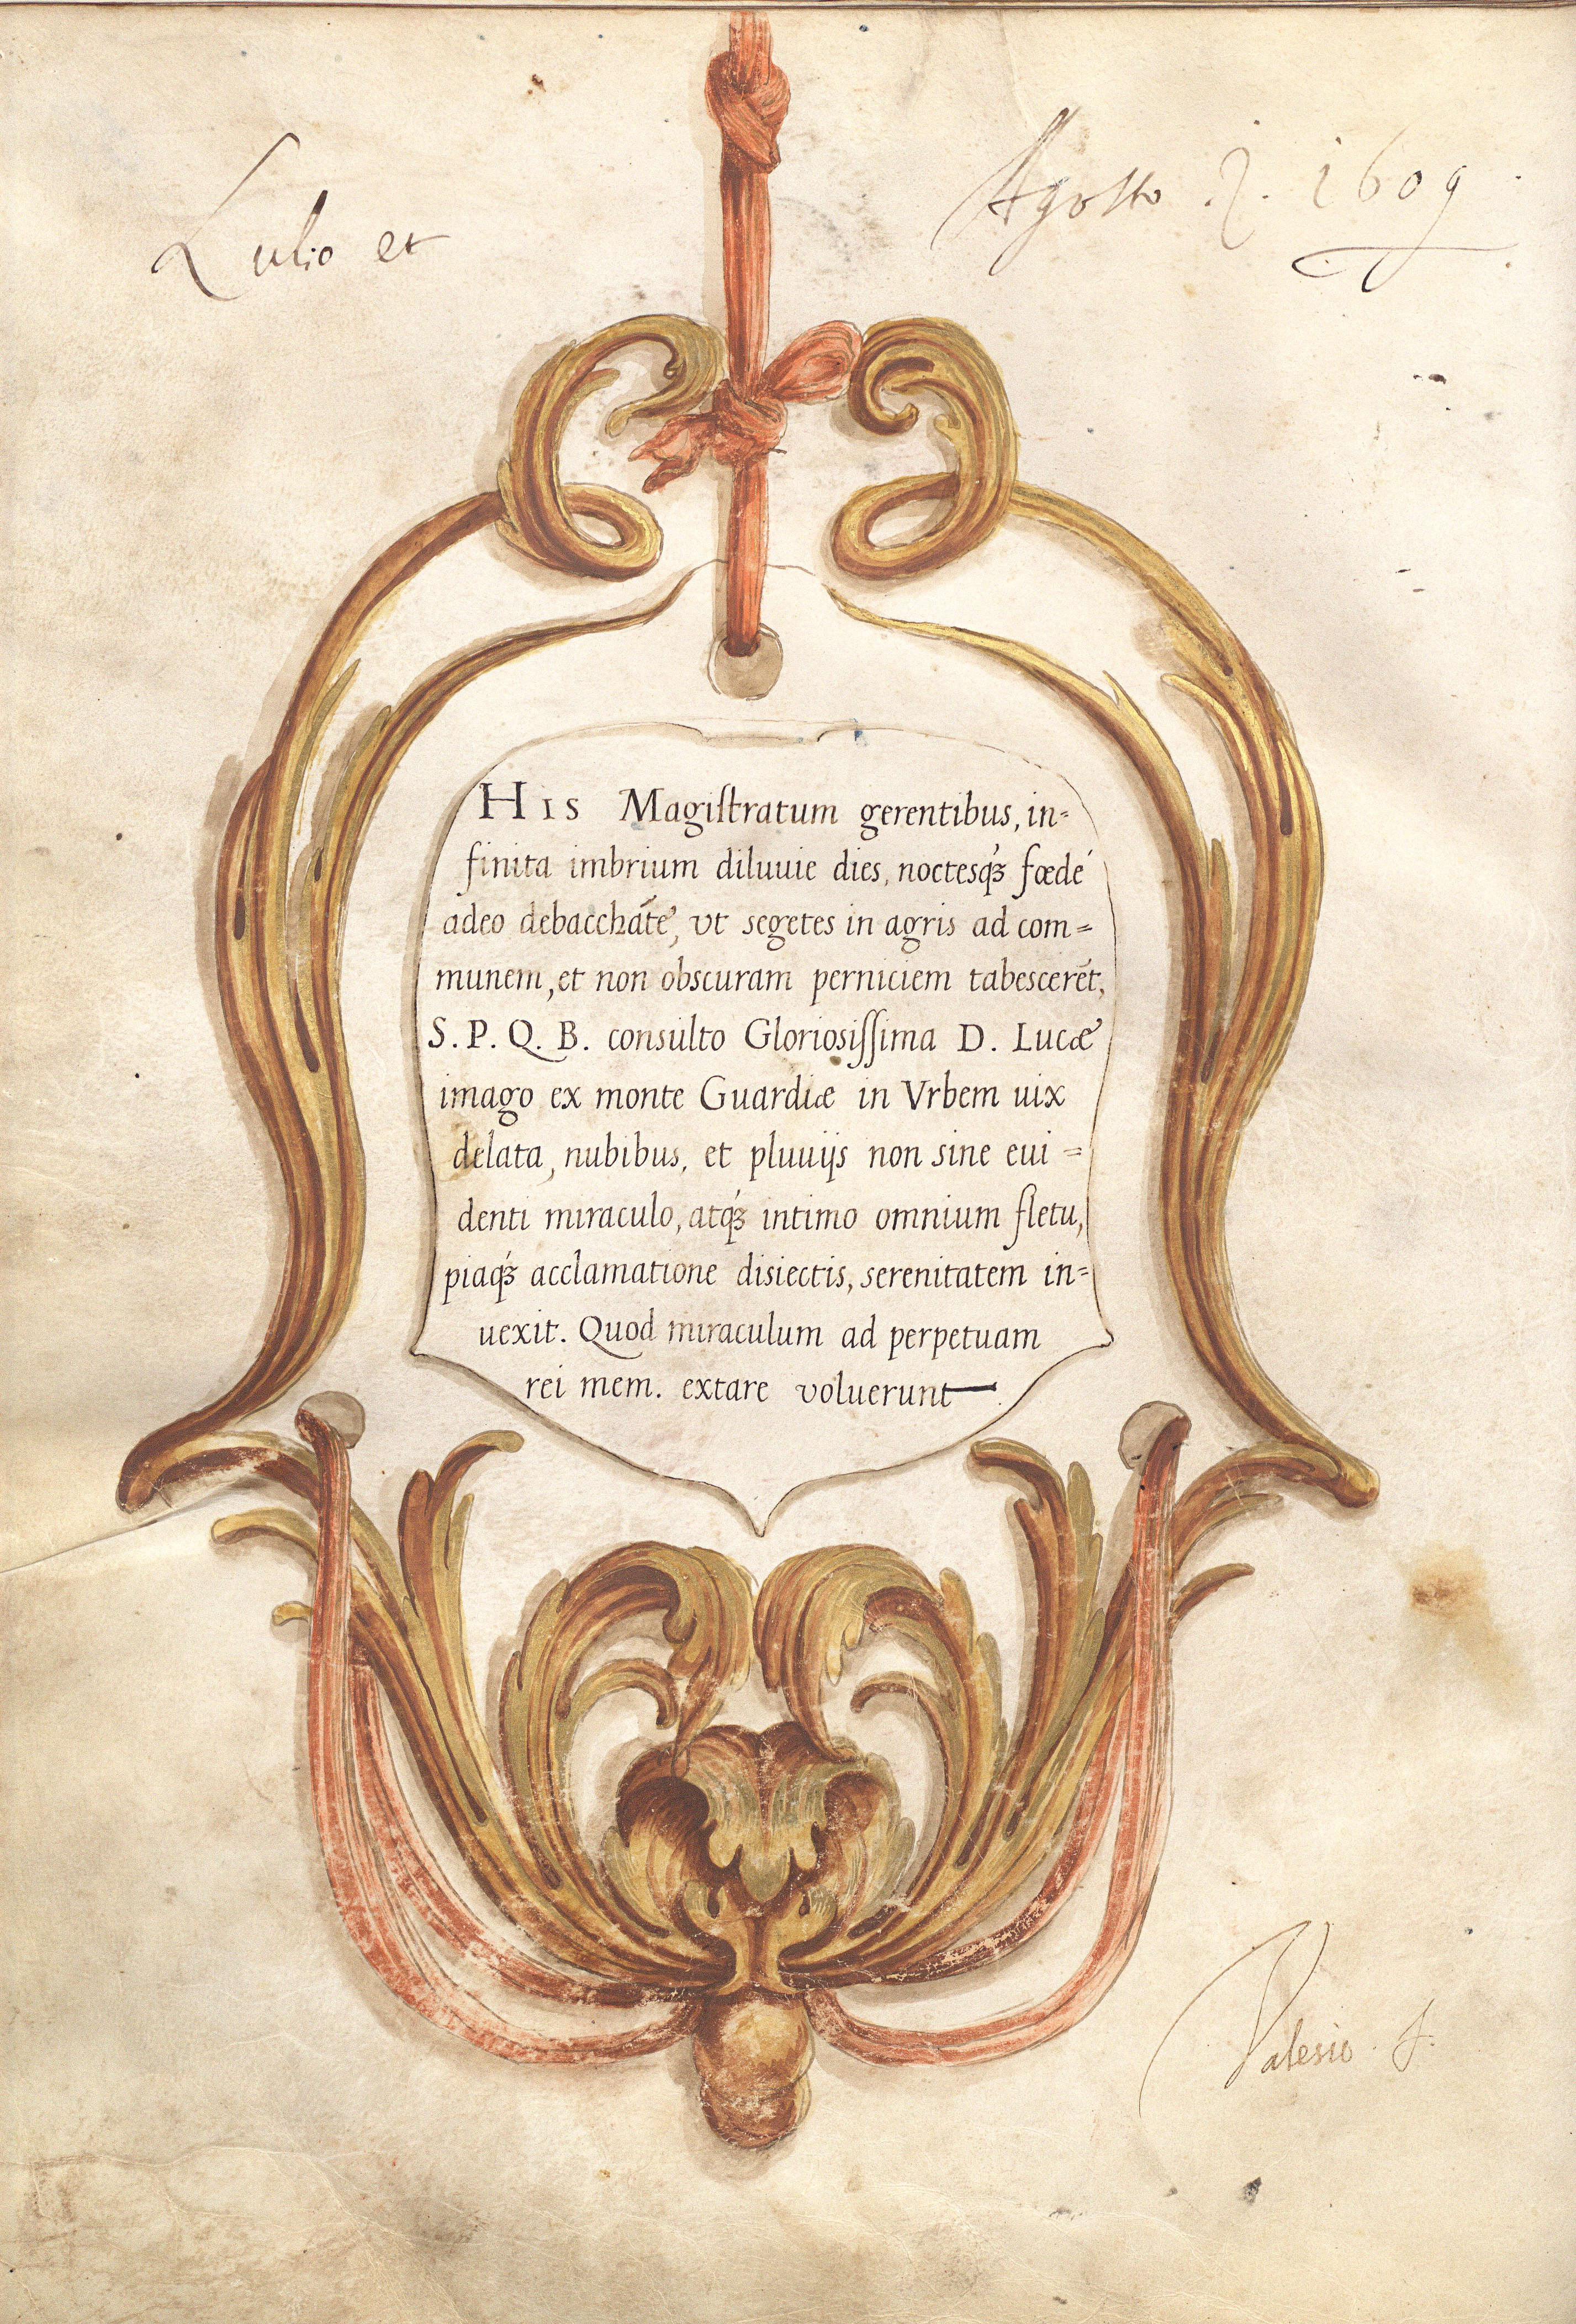 Lulio et
Agosto . 2 . 1609 .
HIS Magistratum gerentibus, in=
finita imbrium diluuie dies, noctesq́ꝫ fœdé
adeo debacchãte, vt segetes in agris ad com=
munem, et non obscuram perniciem tabescerẽt,
S. P. Q. B. consulto Gloriosissima D. Lucæ
imago ex monte Guardiæ in Vrbem uix
delata, nubibus, et pluuijs non sine eui=
denti miraculo, atq́ꝫ intimo omnium fletu,
piaq́ꝫ acclamatione disiectis, serenitatem in=
uexit. Quod miraculum ad perpetuam
rei mem. extare voluerunt—.
Valesio . F.